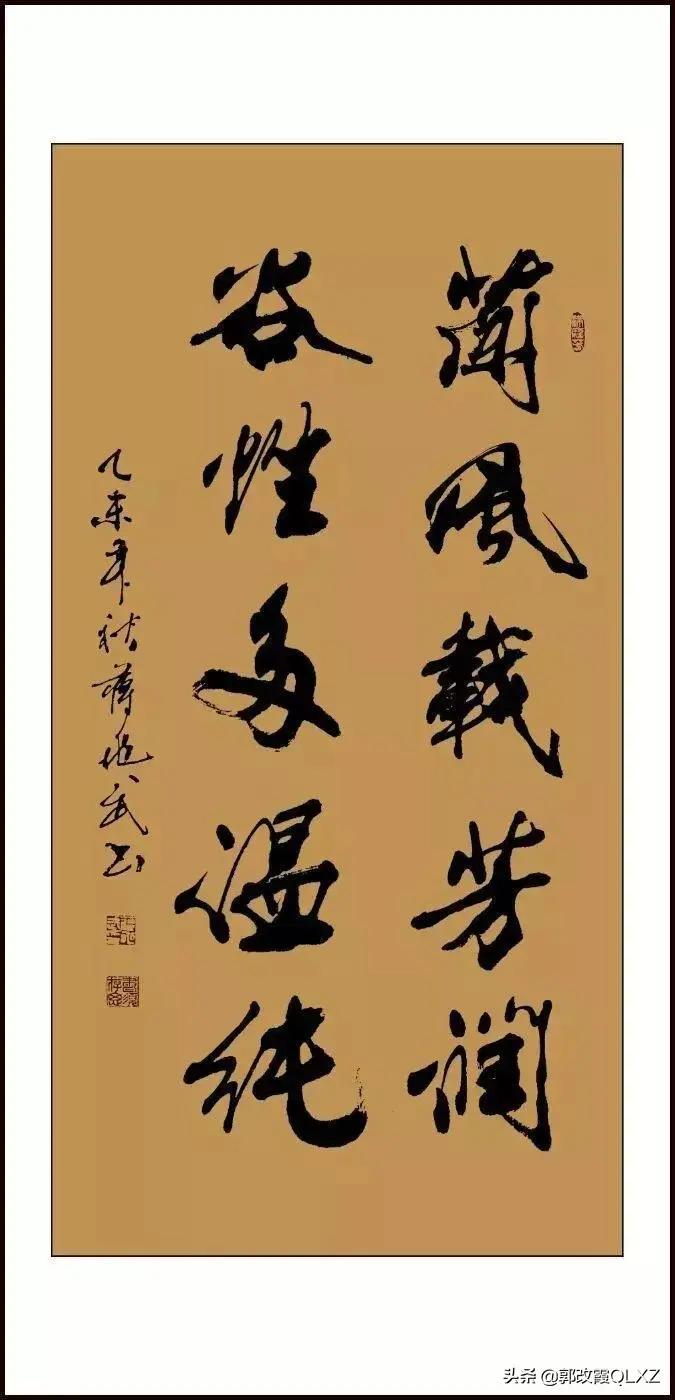 蘭風載芳潤
谷性多温純
乙未年秋 武书
头条 @郭改霞QLXZ